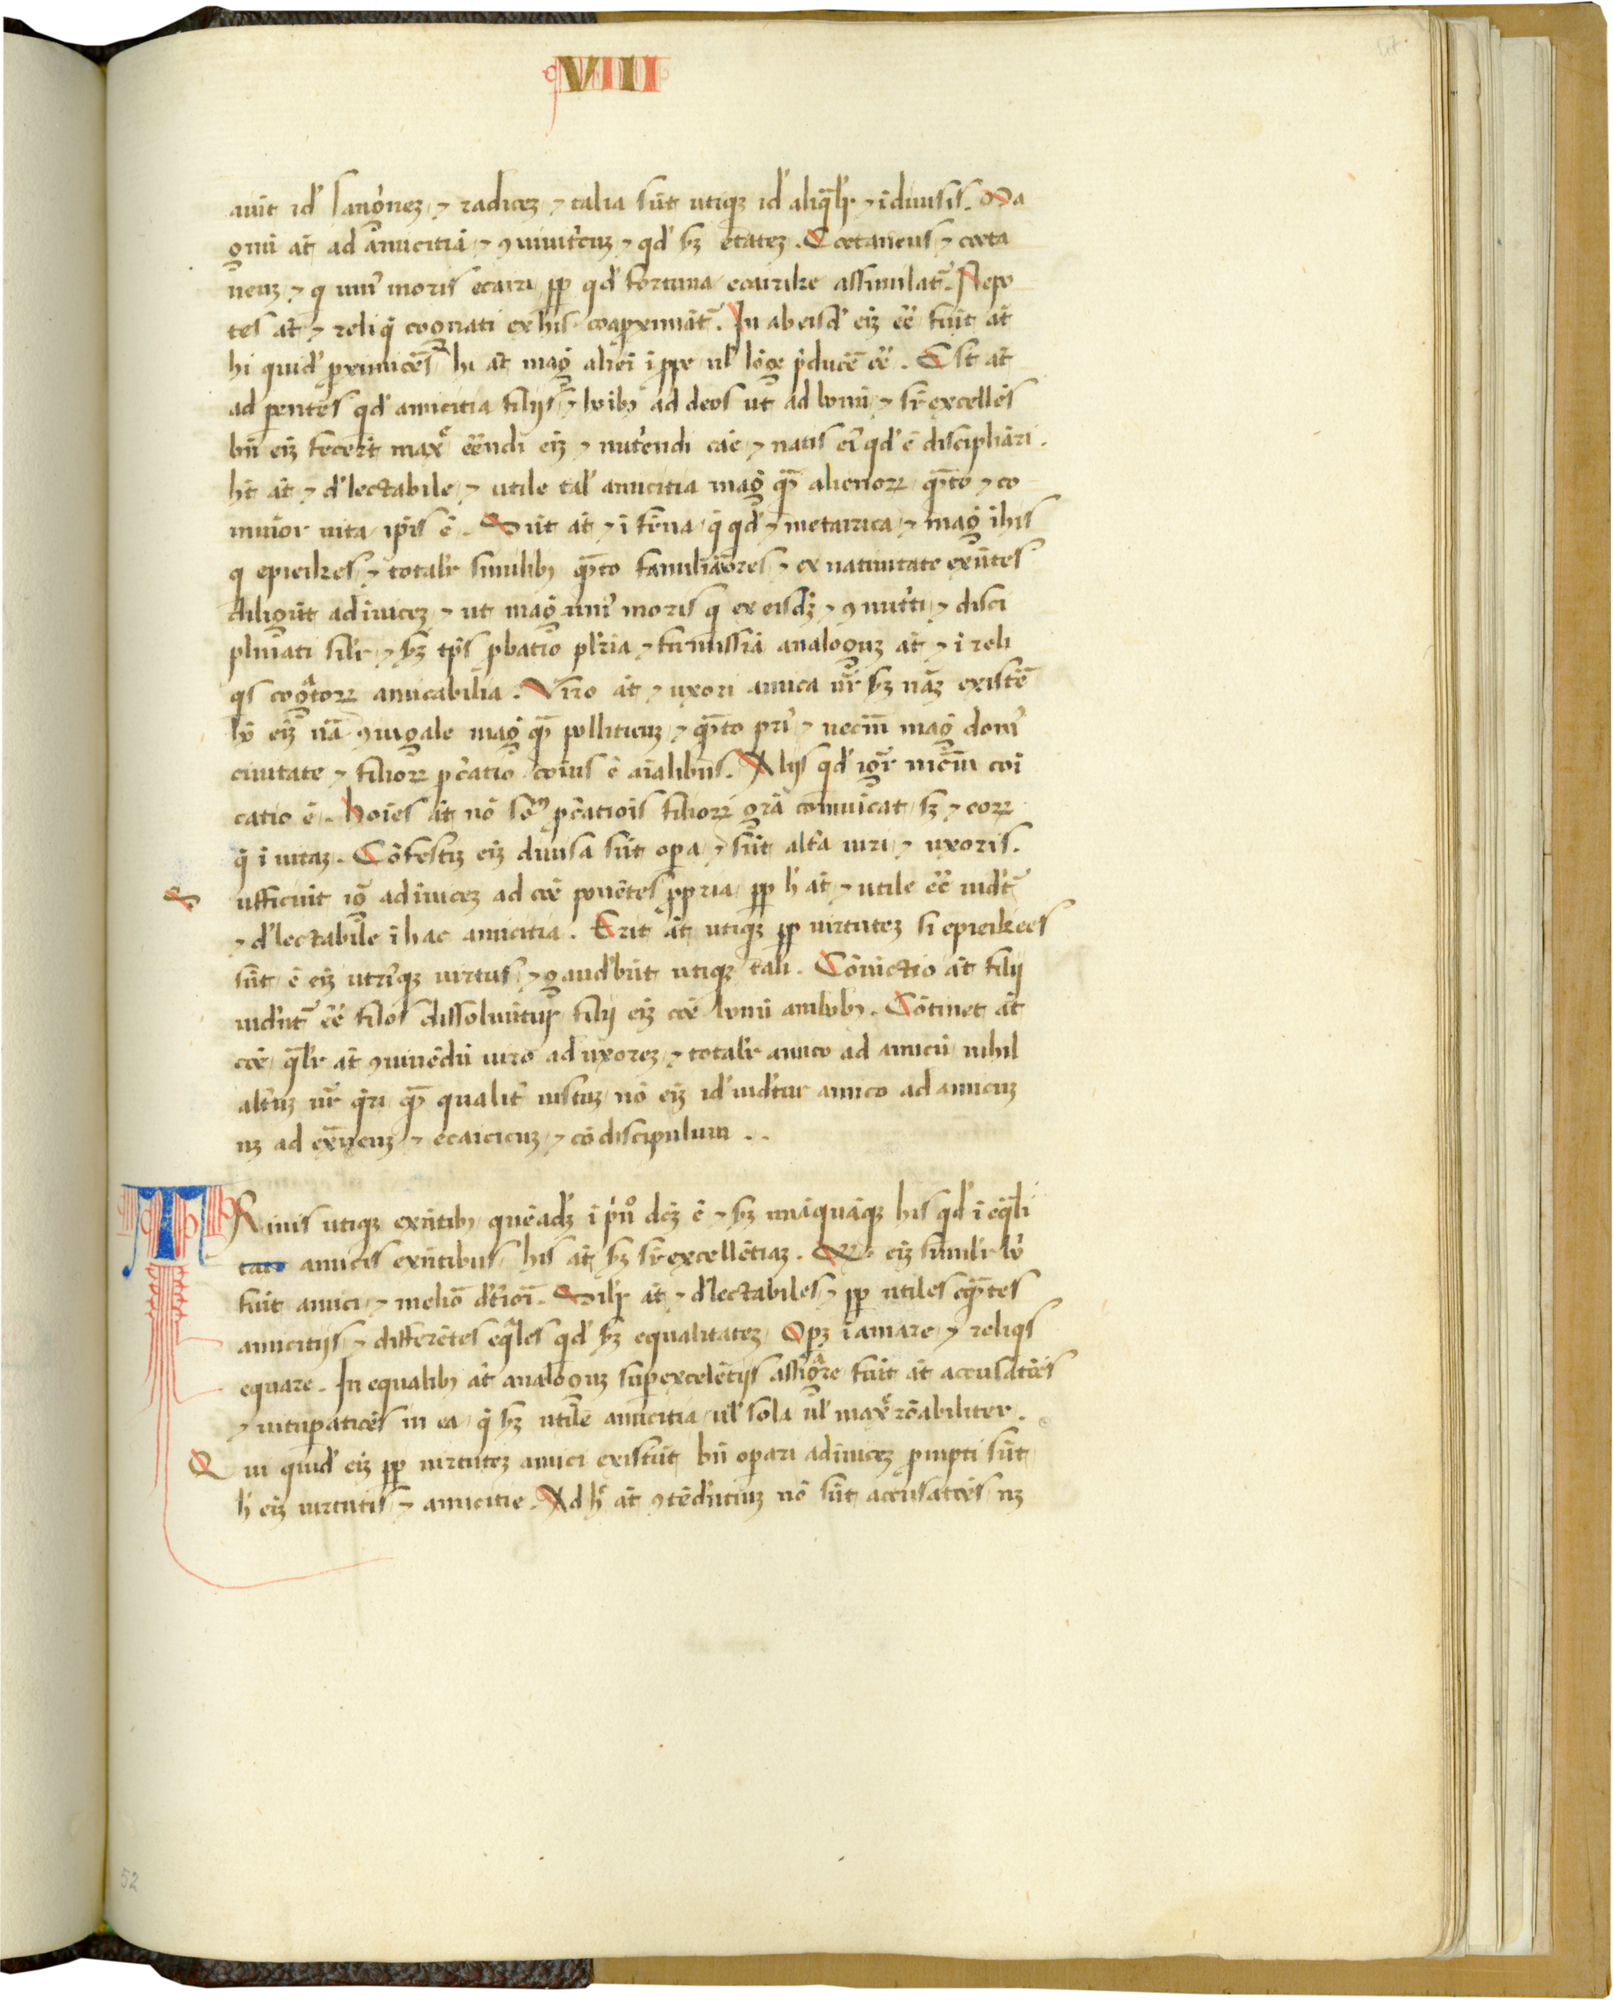 VIII
47.
auit id' sanguinez ⁊ radicez ⁊ talia sūt utiqȝ id' aliqͣlr ⁊ i diuisis. Ma
gnū at̄ ad amicitiā ⁊ ꝯnutͥtiuȝ ⁊ qd' sȝ etatez. Coetaneus ⁊ coeta
neuȝ ⁊ q uniͥ moris ecairi ꝓp qd' fortuna ecairike assimilat̄. Nepo
tes at̄ ⁊ reliqͥ cognati ex his coaproximāt̄. In ab eisd' eiȝ eē fiūt at̄
hi quid' ꝓximiores hi at̄ magͥ alieni i ꝓpe ul' lōge ꝓducē eē. Est at̄
ad pentēs qd' amicitia filiis ⁊ hoibȝ ad deos ut ad bonū ⁊ sꝛ excellēs
bn̄ eiȝ fecert̄ maxͤ eēndi eiȝ ⁊ nutͥendi cāe ⁊ natis eiͥ qd' ē disciplināri.
ht̄ at̄ ⁊ d'lectabile ⁊ utile tal' amicitia magͥ qͣ alienoꝝ qͣto ⁊ co
muniōr uita ip̄is ē. Sūt at̄ ⁊ i frͥna qͥ qd' ⁊ metairica ⁊ magͥ i his
q epieikes ⁊ totalr similibȝ qͣto familiariores ⁊ ex natiuitate exn̄tes
diligūt adiuicez ⁊ ut magͥ uniͥ moris q ex eisdȝ ⁊ ꝯnutͥti ⁊ disci
plinati silr ⁊ sȝ tp̄s ꝓbatio plͥria ⁊ firmissiā analoguȝ at̄ ⁊ i reli
qͥs cogͣtoꝝ amicabilia. Viro at̄ ⁊ uxori amica ur̄ sȝ nāȝ existē
hō eiȝ nā ꝯiugale magͥ qͣ politicuȝ ⁊ qͣto prͥ ⁊ necīn magͥ domͥ
ciuitate ⁊ filioꝝ ꝓcͣatio coīus ē aīalibus. Aliis qd' igr̄ iticm̄ coī
catio ē. hoīes at̄ nō soꝫ ꝓcͣatiois filioꝝ grā comuīcat sȝ ⁊ eoꝝ
qͥ i uitaȝ. Cōfestiȝ eiȝ diuisa sūt opa ⁊ sūt altͣa uiri ⁊ uxoris.
S ufficiūt igͣ adiuicez ad coē ponētes ꝓpria ꝓp h' at̄ ⁊ utile eē uidt̄
⁊ d'lectabile i hac amicitia. Erit at̄ utiqȝ ꝓp uirtutez si epieikees
sūt ē eiȝ utrͥqȝ uirtus ⁊ gaud'būt utiqȝ tali. Cōiūctio at̄ filii
uid'nt̄ eē filos dissoluūtur filii eiȝ coē bonū ambobȝ. Cōtinet at̄
coē qͣlr at̄ ꝯuiuēdū uiro ad uxorez ⁊ totalr amico ad amicū nihil
altͥuȝ ur̄ qͥri qͣ qualitͥ iustuȝ nō eiȝ id' uidͥtur amico ad amicuȝ
nȝ ad ext̄neuȝ ⁊ ecaicicuȝ ⁊ cōdiscipulum . .
TRinis utiqȝ exn̄tibȝ quēadȝ i prͥn° dcȝ ē ⁊ sȝ unāquāqȝ his qd' i eqͣli
tate amicis exn̄tibus his at̄ sȝ sꝛ excellētiaȝ. eiȝ similr bōͥ
fiūt amici ⁊ meliō dͥtioīͥ. Silr at̄ ⁊ d'lectabiles ⁊ ꝓp utiles eqͣntes
amicitiis ⁊ differētes eqͣles qd' sȝ equalitatez. Opȝ i amare ⁊ reliqͥs
equare. In equalibȝ at̄ analoguȝ supexcelētiis assigͣre fiūt at̄ accusatōes
⁊ uitupatiōes in ea qͥ sȝ utile amicitia ul' sola ul' maxͤ rōabiliter.
Qui quid' eiȝ ꝓp uirtutez amici existūt bn̄ opari adiuicez ꝓmpti sūt
h' eiȝ uirtutis ⁊ amicitie. Ad h' at̄ ꝯtēd'ntiuȝ nō sūt accusatōes nȝ
52